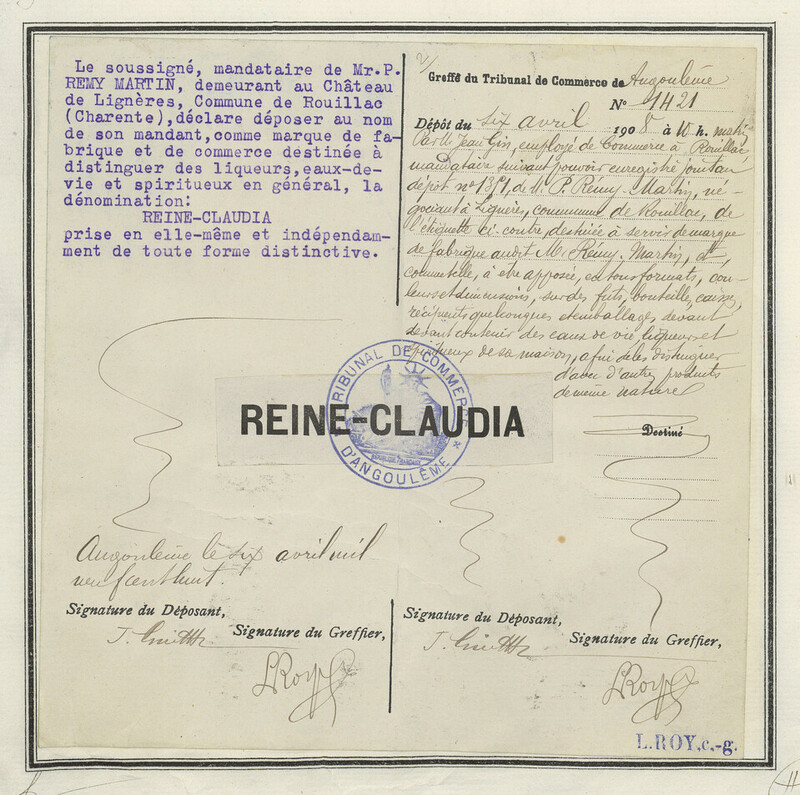 Le soussigné, mandataire de Mr.P.
REMY MARTIN, demeurant au Château
de Lignères, Commune de Rouillac
(Charente),déclare déposer au nom
de son mandant,comme marque de fa-
brique et de commerce destinée à
distinguer des liqueurs,eaux-de-
vie et spiritueux en général, la
dénomination:
REINE-CLAUDIA
prise en elle-même et indépendam-
ment de toute forme distinctive.
2/
Greffe du Tribunal de Commerce de Angoulême
N° 1421
Dépôt du six avril 1908 à 10 h. matin
Par M. Jean Gin, employé de Commerce à Rouillac,
mandataire suivant pouvoir enregistré joint au
dépôt n° 1351, de M. P. Rémy-Martin, né-
gociant à Lignères, commune de Rouillac, de
l'étiquette ci-contre, destinée à servir de marque
de fabrique audit M. Rémy-Martin, et
comme telle, à être apposée, en tous formats, cou-
leurs et dimensions, sur des fûts, bouteille, caisses,
récipients quelconques et emballages, devant
devant contenir des eaux de vie, liqueurs et
spiritueux de sa maison, afin de les distinguer
d'avec d'autres produits
de même nature
TRIBUNAL DE COMMERCE
REINE-CLAUDIA
RÉPUBLIQUE FRANÇAISE
D'ANGOULÊME
Destiné
Angoulême le six avril mil
neuf cent huit.
Signature du Déposant,
Signature du Greffier,
LRoy
Signature du Déposant,
Signature du Greffier,
LRoy
L.ROY,c.-g.